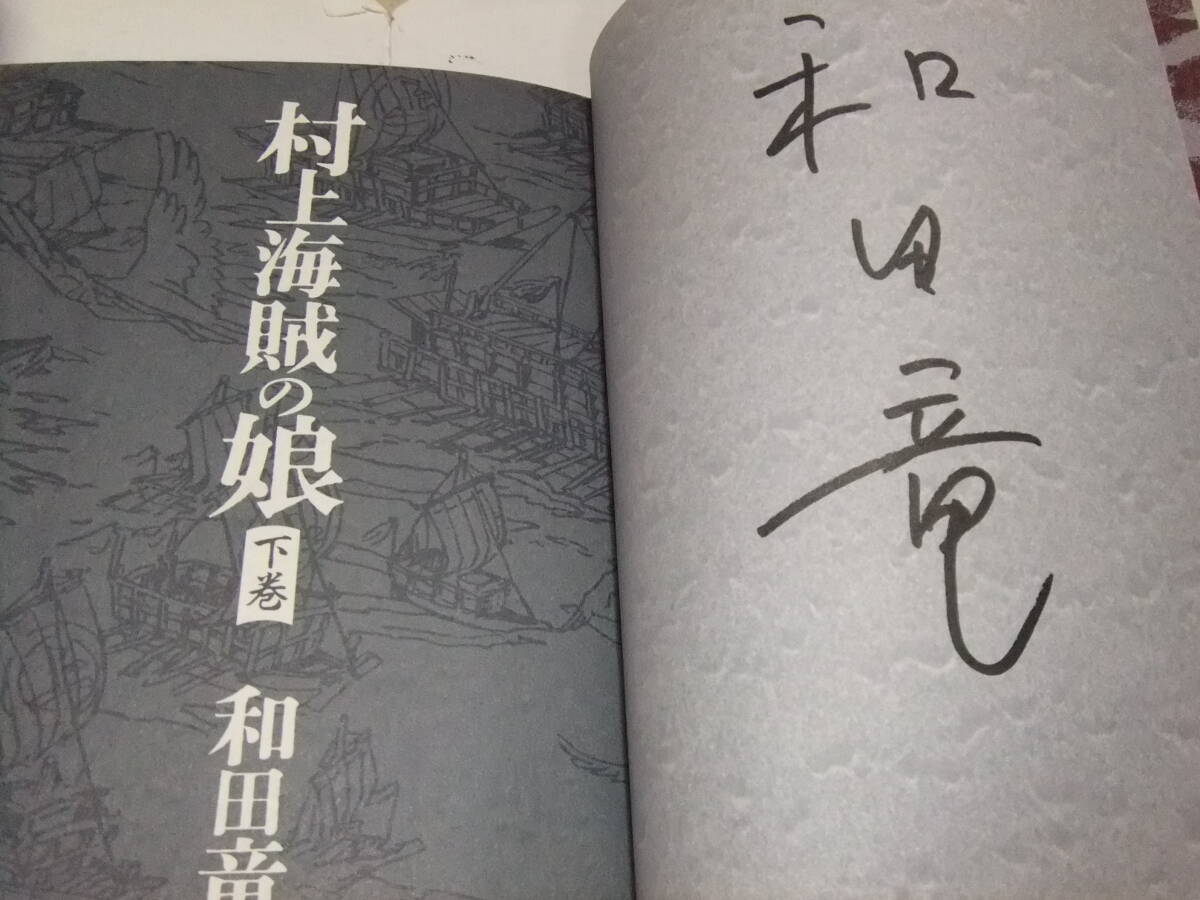 和田竜
村上海賊の娘
下巻
和田竜